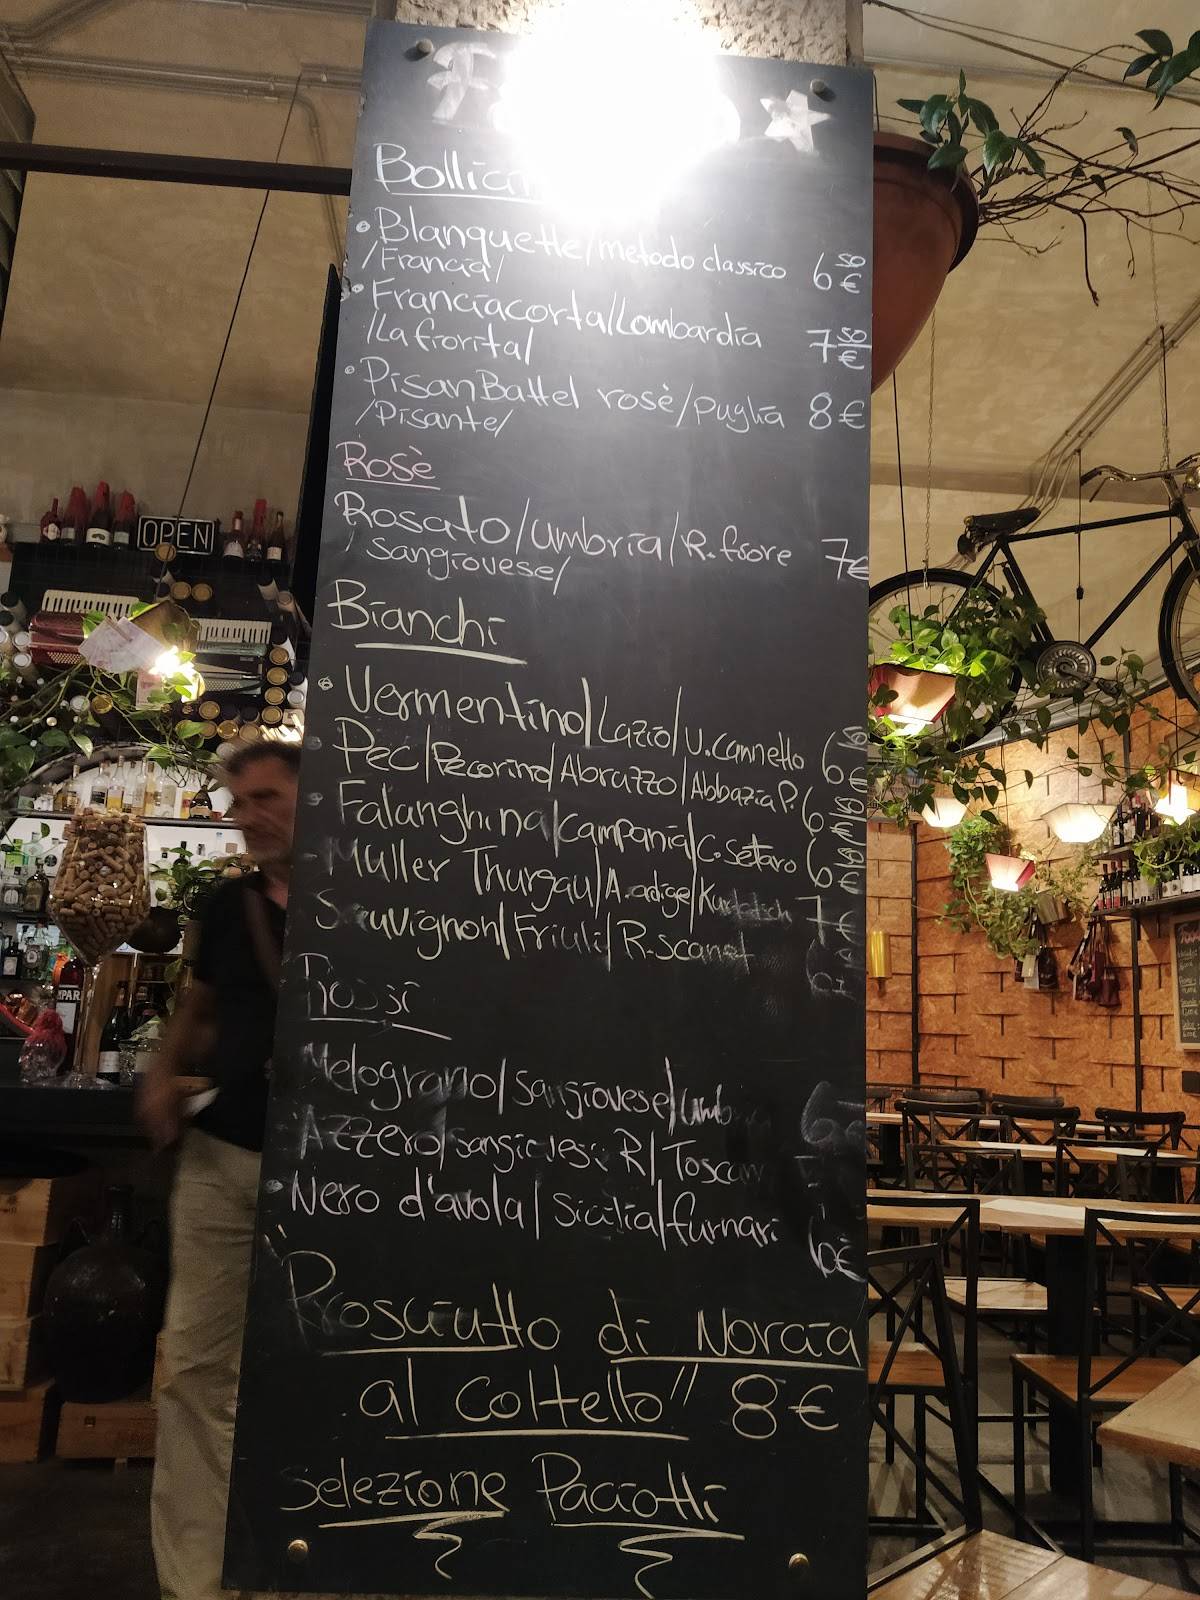 • Blanquette/metodo classico 6 50 €
/Francia/
• Franciacorta/Lombardia 7 50 €
/La fiorita/
• PisanBattel rosè/puglia 8€
/Pisante/
Rosè
Rosato/umbria/R.fiore 7€
/sangiovese/
Bianchi
• Vermentino/Lazio/V.Cannello 6
Pec/Pecorino/Abruzzo/Abbazia P. 6
• Falanghina/Campania/C.Setaro 6
- Muller Thurgau/A.adige/Kurtatsch 7€
Sauvignon/Friuli/R.scanet
Rossi
Melograno/Sangiovese/umb 6
Azzero/sangiovese R/Toscan
• Nero d'avola/Sicilia/furnari 6€
"Prosciutto di Norcia
al coltello" 8€
selezione Paciotti
OPEN
MPAR